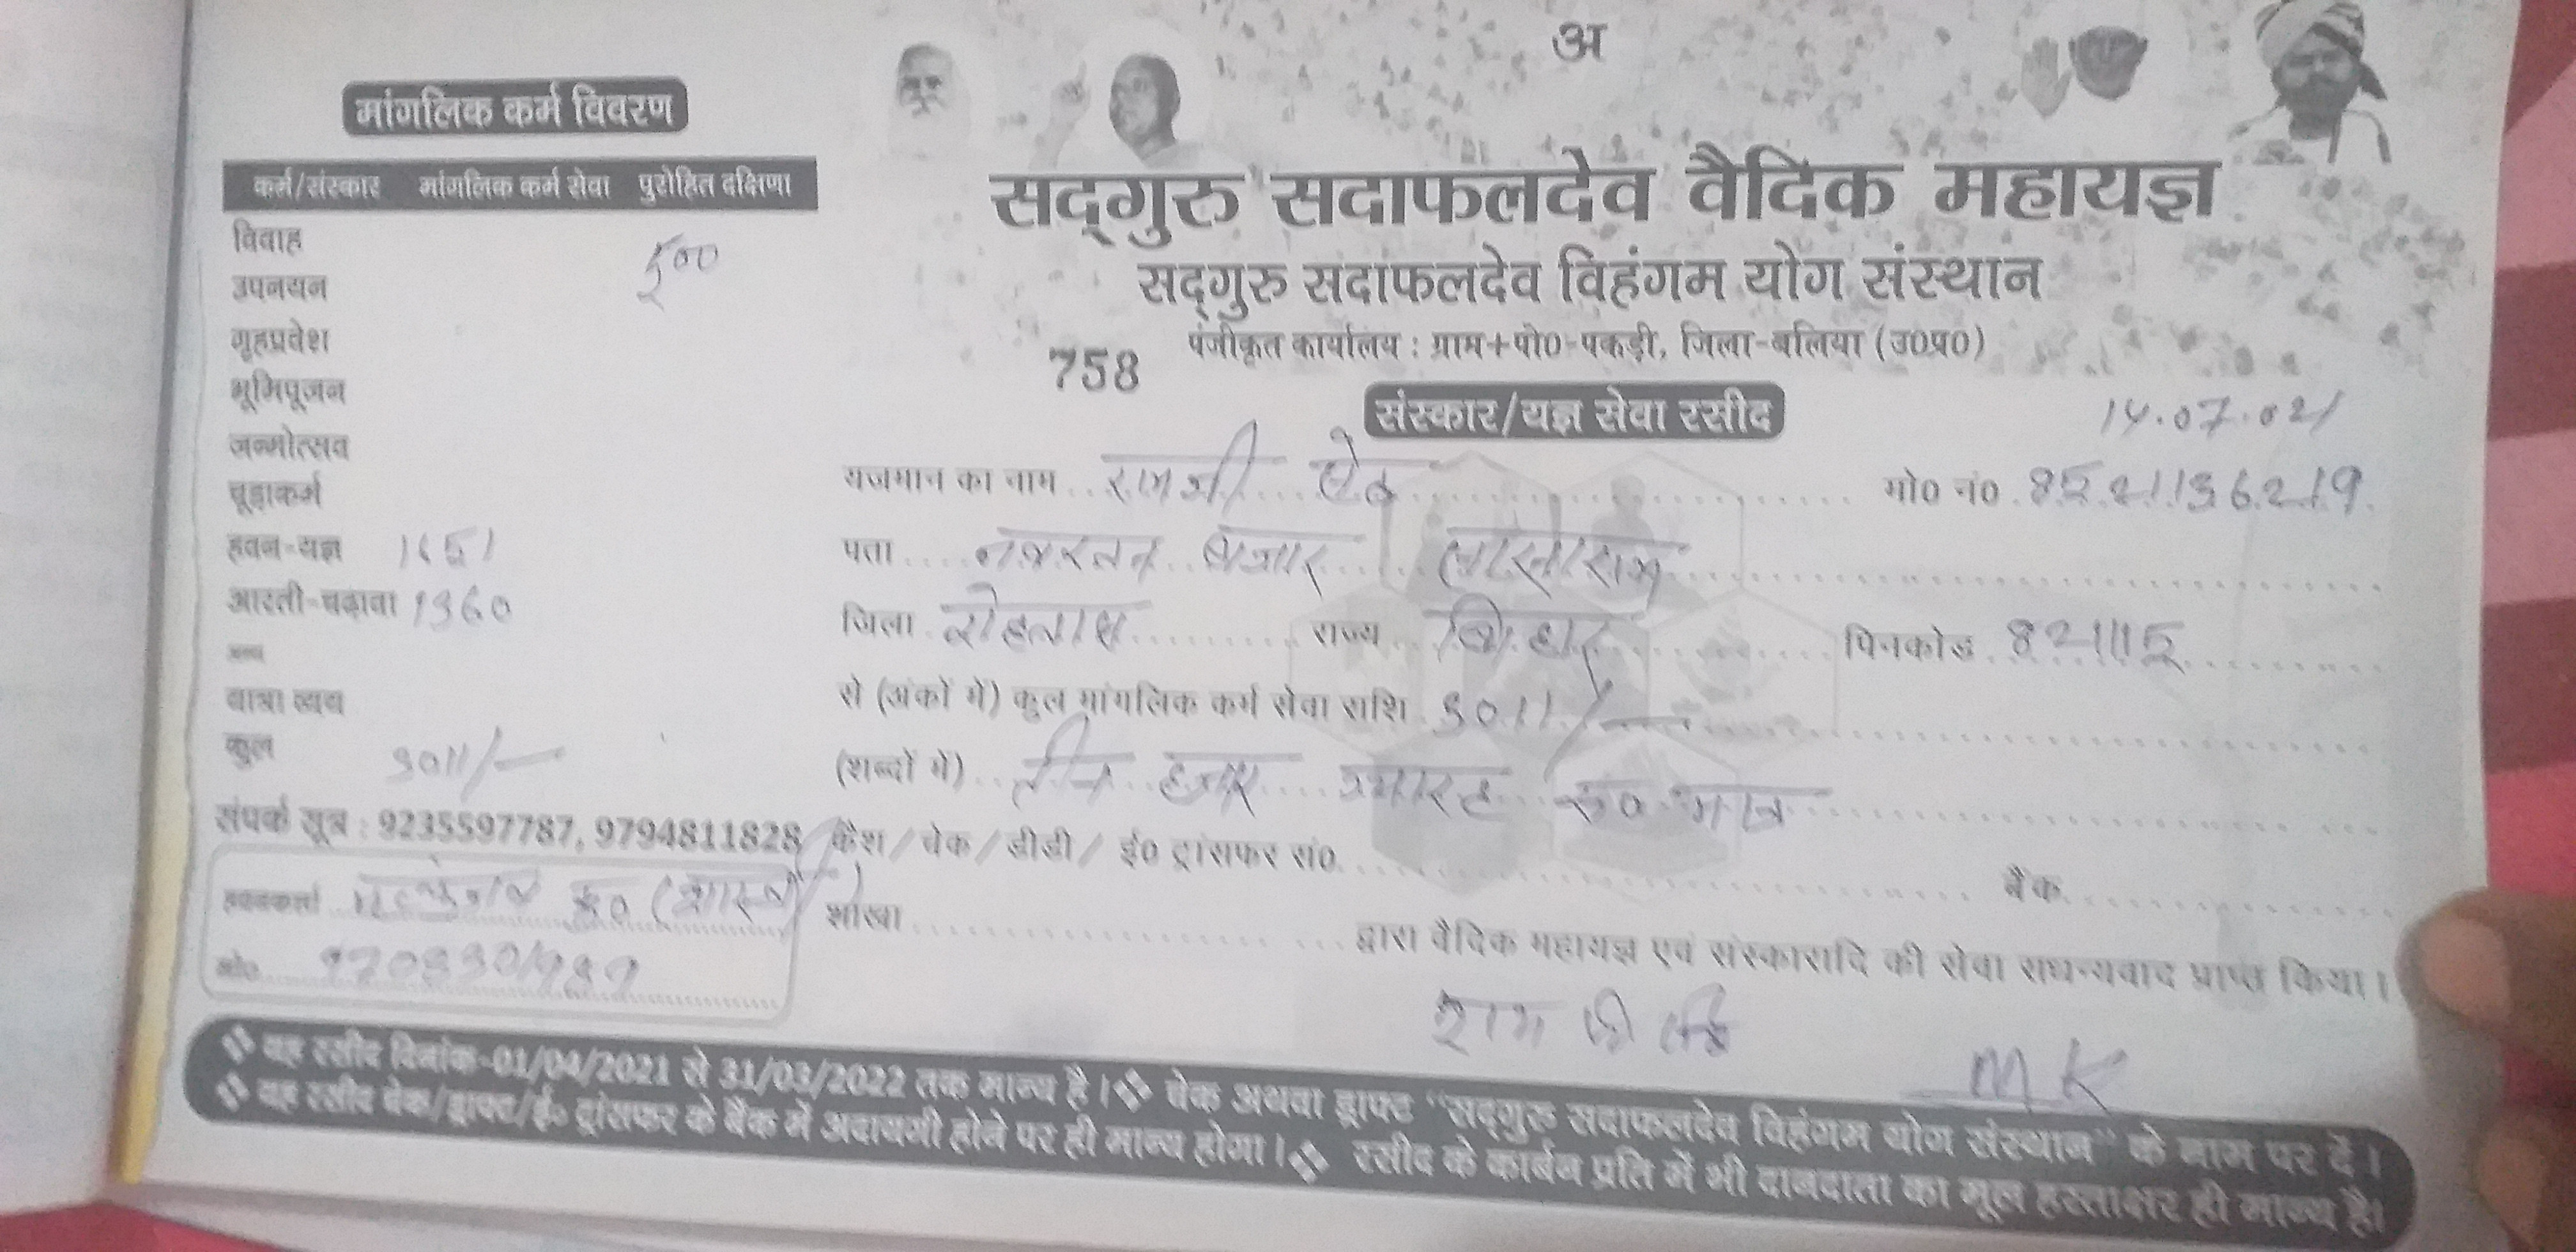 अ
मांगलिक कर्म विवरण
कर्म/संस्कार मांगलिक कर्म सेवा पुरोहित दक्षिणा
विवाह
500
उपनयन
गृहप्रवेश
भूमिपूजन
जन्मोत्सव
चूड़ाकर्म
हवन-यज्ञ 1651
आरती-चढ़ावा 1360
अन्य
यात्रा व्यय
कुल 3011/-
संपर्क सूत्र : 9235597787, 9794811828
हवनकर्त्ता कु0 (शास्त्री)
मो0
सद्गुरु सदाफलदेव वैदिक महायज्ञ
सद्गुरु सदाफलदेव विहंगम योग संस्थान
पंजीकृत कार्यालय : ग्राम+पो0-पकड़ी, जिला-बलिया (उ0प्र0)
758
संस्कार/यज्ञ सेवा रसीद
14.07.021
यजमान का नाम रामजी सेठ मो0 नं0 8521136219
पता नवरतन बाजार सासाराम
जिला रोहतास राज्य बिहार पिनकोड 821115
से (अंकों में) कुल मांगलिक कर्म सेवा राशि 3011/-
(शब्दों में) तीन हजार ग्यारह रु0 मात्र
कैश/चेक/डीडी/ ई0 ट्रांसफर सं0 बैंक
शाखा द्वारा वैदिक महायज्ञ एवं संस्कारादि की सेवा सधन्यवाद प्राप्त किया।
राम जी
MK
❖ यह रसीद दिनांक-01/04/2021 से 31/03/2022 तक मान्य है। ❖ चेक अथवा ड्राफ्ट "सद्गुरु सदाफलदेव विहंगम योग संस्थान" के नाम पर दें।
❖ यह रसीद चेक/ड्राफ्ट/ई० ट्रांसफर के बैंक में अदायगी होने पर ही मान्य होगा। ❖ रसीद के कार्बन प्रति में भी दानदाता का मूल हस्ताक्षर ही मान्य है।